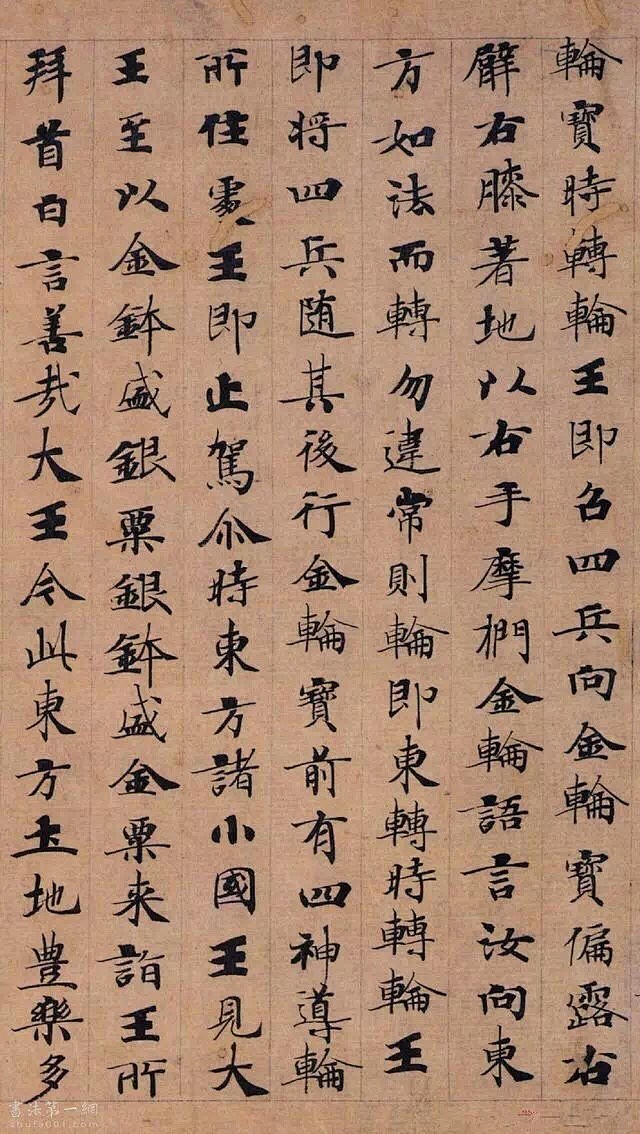 輪寶時轉輪王即召四兵向金輪寶偏露右
臂右膝著地以右手摩捫金輪語言汝向東
方如法而轉勿違常則輪即東轉時轉輪王
即將四兵随其後行金輪寶前有四神導輪
所住處王即止駕尒時東方諸小國王見大
王至以金鉢盛銀粟銀鉢盛金粟来詣王所
拜首白言善哉大王今此東方土地豊樂多
書法第一網
shufa001.com